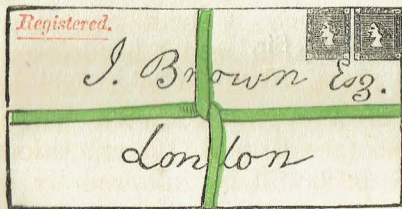 Registered.
J. Brown Esq.
London